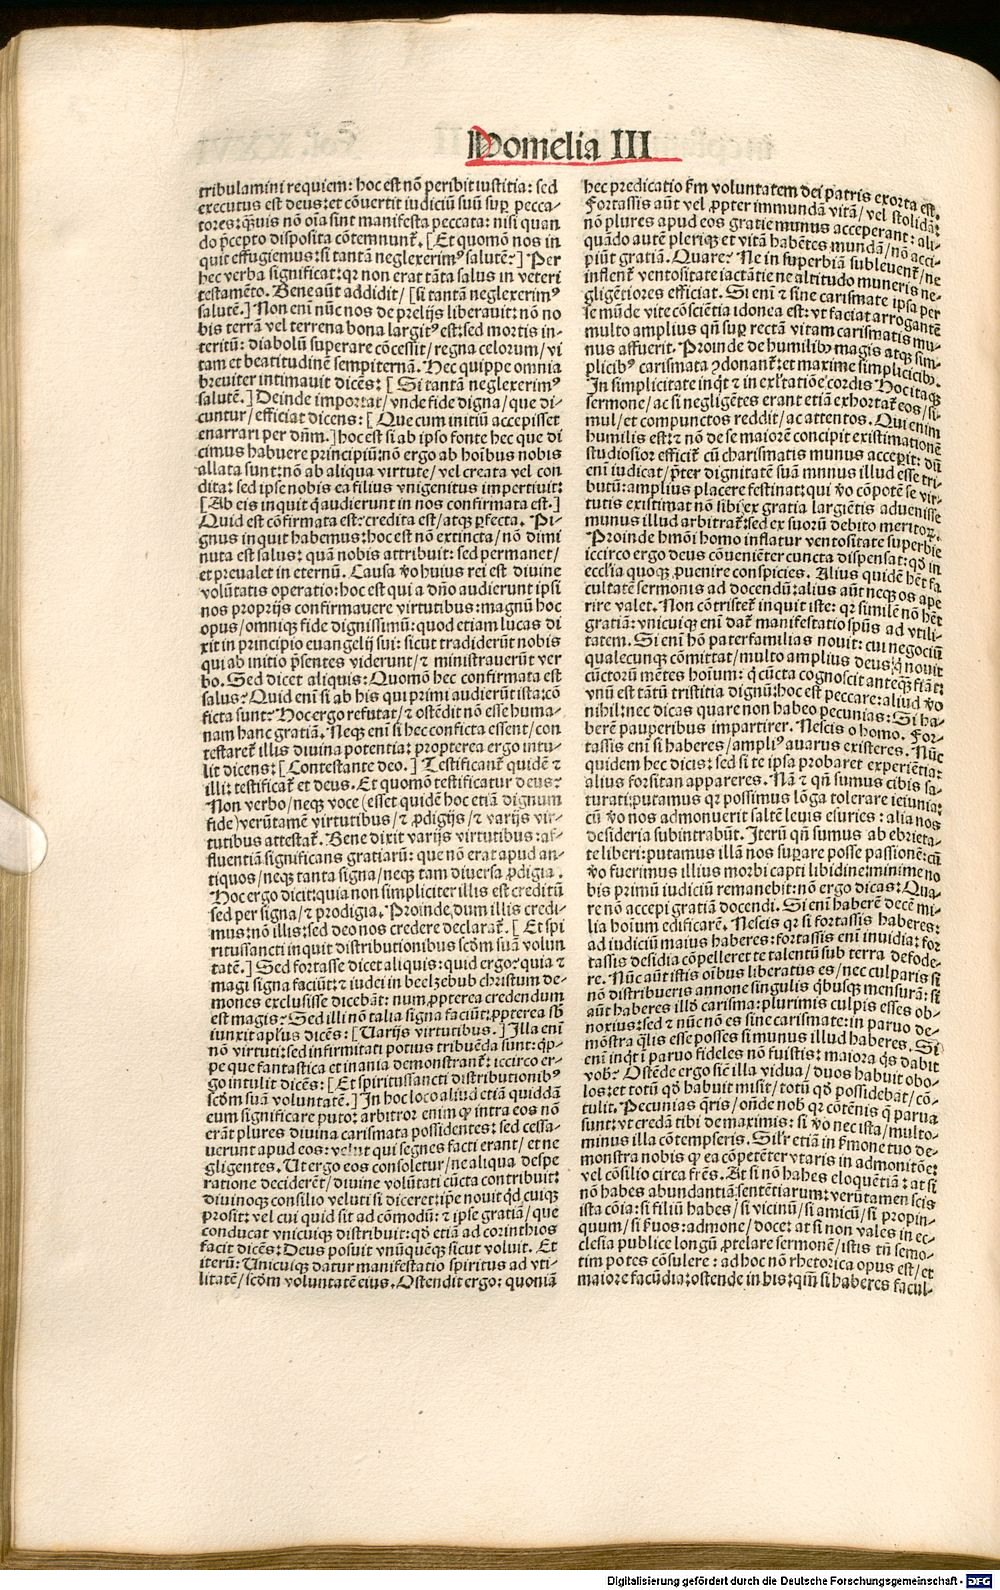 Homelia III
tribulamini requiem: hoc est nō peribit iustitia: sed
executus est deus: et cōuertit iudiciū suū suꝑ pecca-
tores: q̄uis nō oīa sint manifesta peccata: nisi quan
do p̄cepto disposita cōtemnunt᷑. [Et quomō nos in
quit effugiemus: si tantā neglexerimꝰ salutē?] Per
hec verba significat: qꝛ non erat tāta salus in veteri
testamēto. Bene aūt addidit/ [si tantā neglexerimꝰ
salutē.] Non enī nūc nos de prelijs liberauit: nō no
bis terrā vel terrena bona largitꝰ est: sed mortis in-
teritū: diabolū superare cōcessit/ regna celorum/ vi
tam et beatitudinē sempiternā. Hec quippe omnia
breuiter intimauit dicēs: [Si tantā neglexerimꝰ
salutē.] Deinde importat/ vnde fide digna/ que di-
cuntur/ efficiat dicens: [Que cum initiū accepisset
enarrari per dn̄m.] hoc est si ab ipso fonte hec que di
cimus habuere principiū: nō ergo ab hoībus nobis
allata sunt: nō ab aliqua virtute/ vel creata vel con
dita: sed ipse nobis ea filius vnigenitus impertiuit:
[Ab eis inquit q̄ audierunt in nos confirmata est.]
Quid est cōfirmata est: credita est/ atqꝫ ꝑfecta. Pi-
gnus inquit habemus: hoc est nō extincta/ nō dimi
nuta est salus: quā nobis attribuit: sed permanet/
et preualet in eternū. Causa v̄o huius rei est diuine
volūtatis operatio: hoc est qui a dn̄o audierunt ipsi
nos proprijs confirmauere virtutibus: magnū hoc
opus/ omniqꝫ fide dignissimū: quod etiam lucas di
xit in principio euangelij sui: sicut tradiderūt nobis
qui ab initio p̄sentes viderunt/ ⁊ ministrauerūt ver
bo. Sed dicet aliquis: Quomō hec confirmata est
salus? Quid enī si ab his qui primi audierūt ista: cō
ficta sunt? Hoc ergo refutat/ ⁊ ostēdit nō esse huma-
nam hanc gratiā. Neqꝫ enī si hec conficta essent/ con
testaret᷑ illis diuina potentia: propterea ergo intu-
lit dicens: [Contestante deo.] Testificant᷑ quidē ⁊
illi: testificat᷑ et deus. Et quomō testificatur deus?
Non verbo/ neqꝫ voce (esset quidē hoc etiā dignum
fide) verūtamē virtutibus/ ⁊ ꝓdigijs/ ⁊ varijs vir-
tutibus attestat᷑. Bene dixit varijs virtutibus: af-
fluentiā significans gratiarū: que nō erat apud an-
tiquos/ neqꝫ tanta signa/ neqꝫ tam diuersa ꝓdigia.
Hoc ergo dicit: quia non simpliciter illis est creditū
sed per signa/ ⁊ prodigia. Proinde dum illis credi-
mus: nō illis: sed deo nos credere declarat᷑. [Et spi
ritussancti inquit distributionibus scd̄m suā volun
tatē.] Sed fortasse dicet aliquis: quid ergo? quia ⁊
magi signa faciūt: ⁊ iudei in beelzebub christum de-
mones exclusisse dicebāt: num ꝓpterea credendum
est magis? Sed illi nō talia signa faciūt: ꝓpterea sb̄
iunxit apl̄us dicēs: [Varijs virtutibus.] Illa enī
nō virtuti: sed infirmitati potius tribuēda sunt: q̄p-
pe que fantastica et inania demonstrant᷑: iccirco er-
go intulit dicēs: [Et spiritussancti distributionibꝰ
scd̄m suā voluntatē.] In hoc loco aliud etiā quiddā
eum significare puto: arbitror enim ꝙ intra eos nō
erāt plures diuina carismata possidentes: sed cessa-
uerunt apud eos: velut qui segnes facti erant/ et ne
gligentes. Ut ergo eos consoletur/ ne aliqua despe
ratione deciderēt/ diuine volūtati cūcta contribuit:
diuinoqꝫ consilio veluti si diceret: ip̄e nouit qd̄ cuiqꝫ
prosit: vel cui quid sit ad cōmodū: ⁊ ipse gratiā/ que
conducat vnicuiqꝫ distribuit: qd̄ etiā ad corinthios
facit dicēs: Deus posuit vnūquēqꝫ sicut voluit. Et
iterū: Unicuiqꝫ datur manifestatio spiritus ad vti-
litatē/ scd̄m voluntatē eius. Ostendit ergo: quoniā
hec predicatio s̄m voluntatem dei patris exorta est.
Fortassis aūt vel ꝓpter immundā vitā/ vel stolidā:
nō plures apud eos gratie munus acceperant: ali-
quādo autē pleriqꝫ et vitā habētes mundā/ nō acci-
piūt gratiā. Quare? Ne in superbiā subleuent᷑/ ne
inflent᷑ ventositate iactātie ne altitudo muneris ne-
gligētiores efficiat. Si enī ⁊ sine carismate ipsa per
se mūde vite cōsciētia idonea est: vt faciat arrogantē
multo amplius qn̄ suꝑ rectā vitam carismatis mu-
nus affuerit. Proinde de humilibꝫ magis atqꝫ sim-
plicibꝰ carismata ꝯdonant᷑: et maxime simplicibꝫ.
In simplicitate inq̄t ⁊ in exl̄tatiōe cordis Hoc itaqꝫ
sermone/ ac si negligētes erant etiā exhortat᷑ eos/ si-
mul/ et compunctos reddit/ ac attentos. Qui enim
humilis est: ⁊ nō de se maiorē concipit existimationē
studiosior efficit᷑ cū charismatis munus accepit: dū
enī iudicat/ p̄ter dignitatē suā munus illud esse tri-
butū: amplius placere festinat: qui v̄o cōpotē se vir-
tutis existimat nō sibi ex gratia largiētis aduenisse
munus illud arbitrat᷑: sed ex suorū debito meritoꝝ.
Proinde hm̄oi homo inflatur ventositate superbie
iccirco ergo deus cōueniēter cuncta dispensat: qd̄ in
eccl̄ia quoqꝫ ꝓuenire conspicies. Alius quidē hēt fa
cultatē sermonis ad docendū: alius aūt neqꝫ os ape
rire valet. Non cōtristet᷑ inquit iste: qꝛ similē nō hēt
gratiā: vnicuiqꝫ enī dat᷑ manifestatio spūs ad vtili-
tatem. Si enī hō paterfamilias nouit: cui negociū
qualecunqꝫ cōmittat/ multo amplius deus: q̄ nouit
cūctorū mētes hoīum: q̄ cūcta cognoscit anteqꝫ fiāt:
vnū est tātū tristitia dignū: hoc est peccare: aliud v̄o
nihil: nec dicas quare non habeo pecunias: Si ha-
berē pauperibus impartirer. Nescis o homo. For-
tassis enī si haberes/ ampliꝰ auarus existeres. Nūc
quidem hec dicis: sed si te ipsa probaret experiētia:
alius forsitan appareres. Nā ⁊ qn̄ sumus cibis sa-
turati: putamus qꝛ possimus lōga tolerare ieiunia:
cū v̄o nos admonuerit saltē leuis esuries: alia nos
desideria subintrabūt. Iterū qn̄ sumus ab ebrieta-
te liberi: putamus illā nos suꝑare posse passionē: cū
v̄o fuerimus illius morbi capti libidine: minime no
bis primū iudiciū remanebit: nō ergo dicas: Qua-
re nō accepi gratiā docendi. Si enī haberē decē mi-
lia hoīum edificarē. Nescis qꝛ si fortassis haberes:
ad iudiciū maius haberes: fortassis enī inuidia: for
tassis desidia cōpelleret te talentū sub terra defode-
re. Nūc aūt istis oībus liberatus es/ nec culparis si
nō distribueris annone singulis q̄busqꝫ mensurā: si
aūt haberes illd̄ carisma: plurimis culpis esses ob-
noxius: sed ⁊ nūc nō es sine carismate: in paruo de-
mōstra q̄lis esse posses si munus illud haberes. Si
enī inq̄t ī paruo fideles nō fuistis: maiora q̄s dabit
vob̄? Ostēde ergo sic̄ illa vidua/ duos habuit obo-
los: et totū qd̄ habuit misit/ totū qd̄ possidebat/ cō-
tulit. Pecunias q̄ris/ on̄de nob̄ qꝛ cōtēnis q̄ parua
sunt: vt credā tibi de maximis: si v̄o nec ista/ multo-
minus illa cōtempseris. Sil̄r etiā in s̄mone tuo de-
monstra nobis ꝙ ea cōpetēter vtaris in admonitōe:
vel cōsilio circa fr̄es. At si nō habes eloquētiā: at si
nō habes abundantiā sentētiarum: verūtamen scis
ista cōia: si filiū habes/ si vicinū/ si amicū/ si propin-
quum/ si s̄uos: admone/ doce: at si non vales in ec-
clesia publice longū ꝓtelare sermonē/ istis tn̄ semo-
tim potes cōsulere: ad hoc nō rhetorica opus est/ et
maiore facūdia: ostende in his: qm̄ si haberes facul-
Digitalisierung gefördert durch die Deutsche Forschungsgemeinschaft - DFG